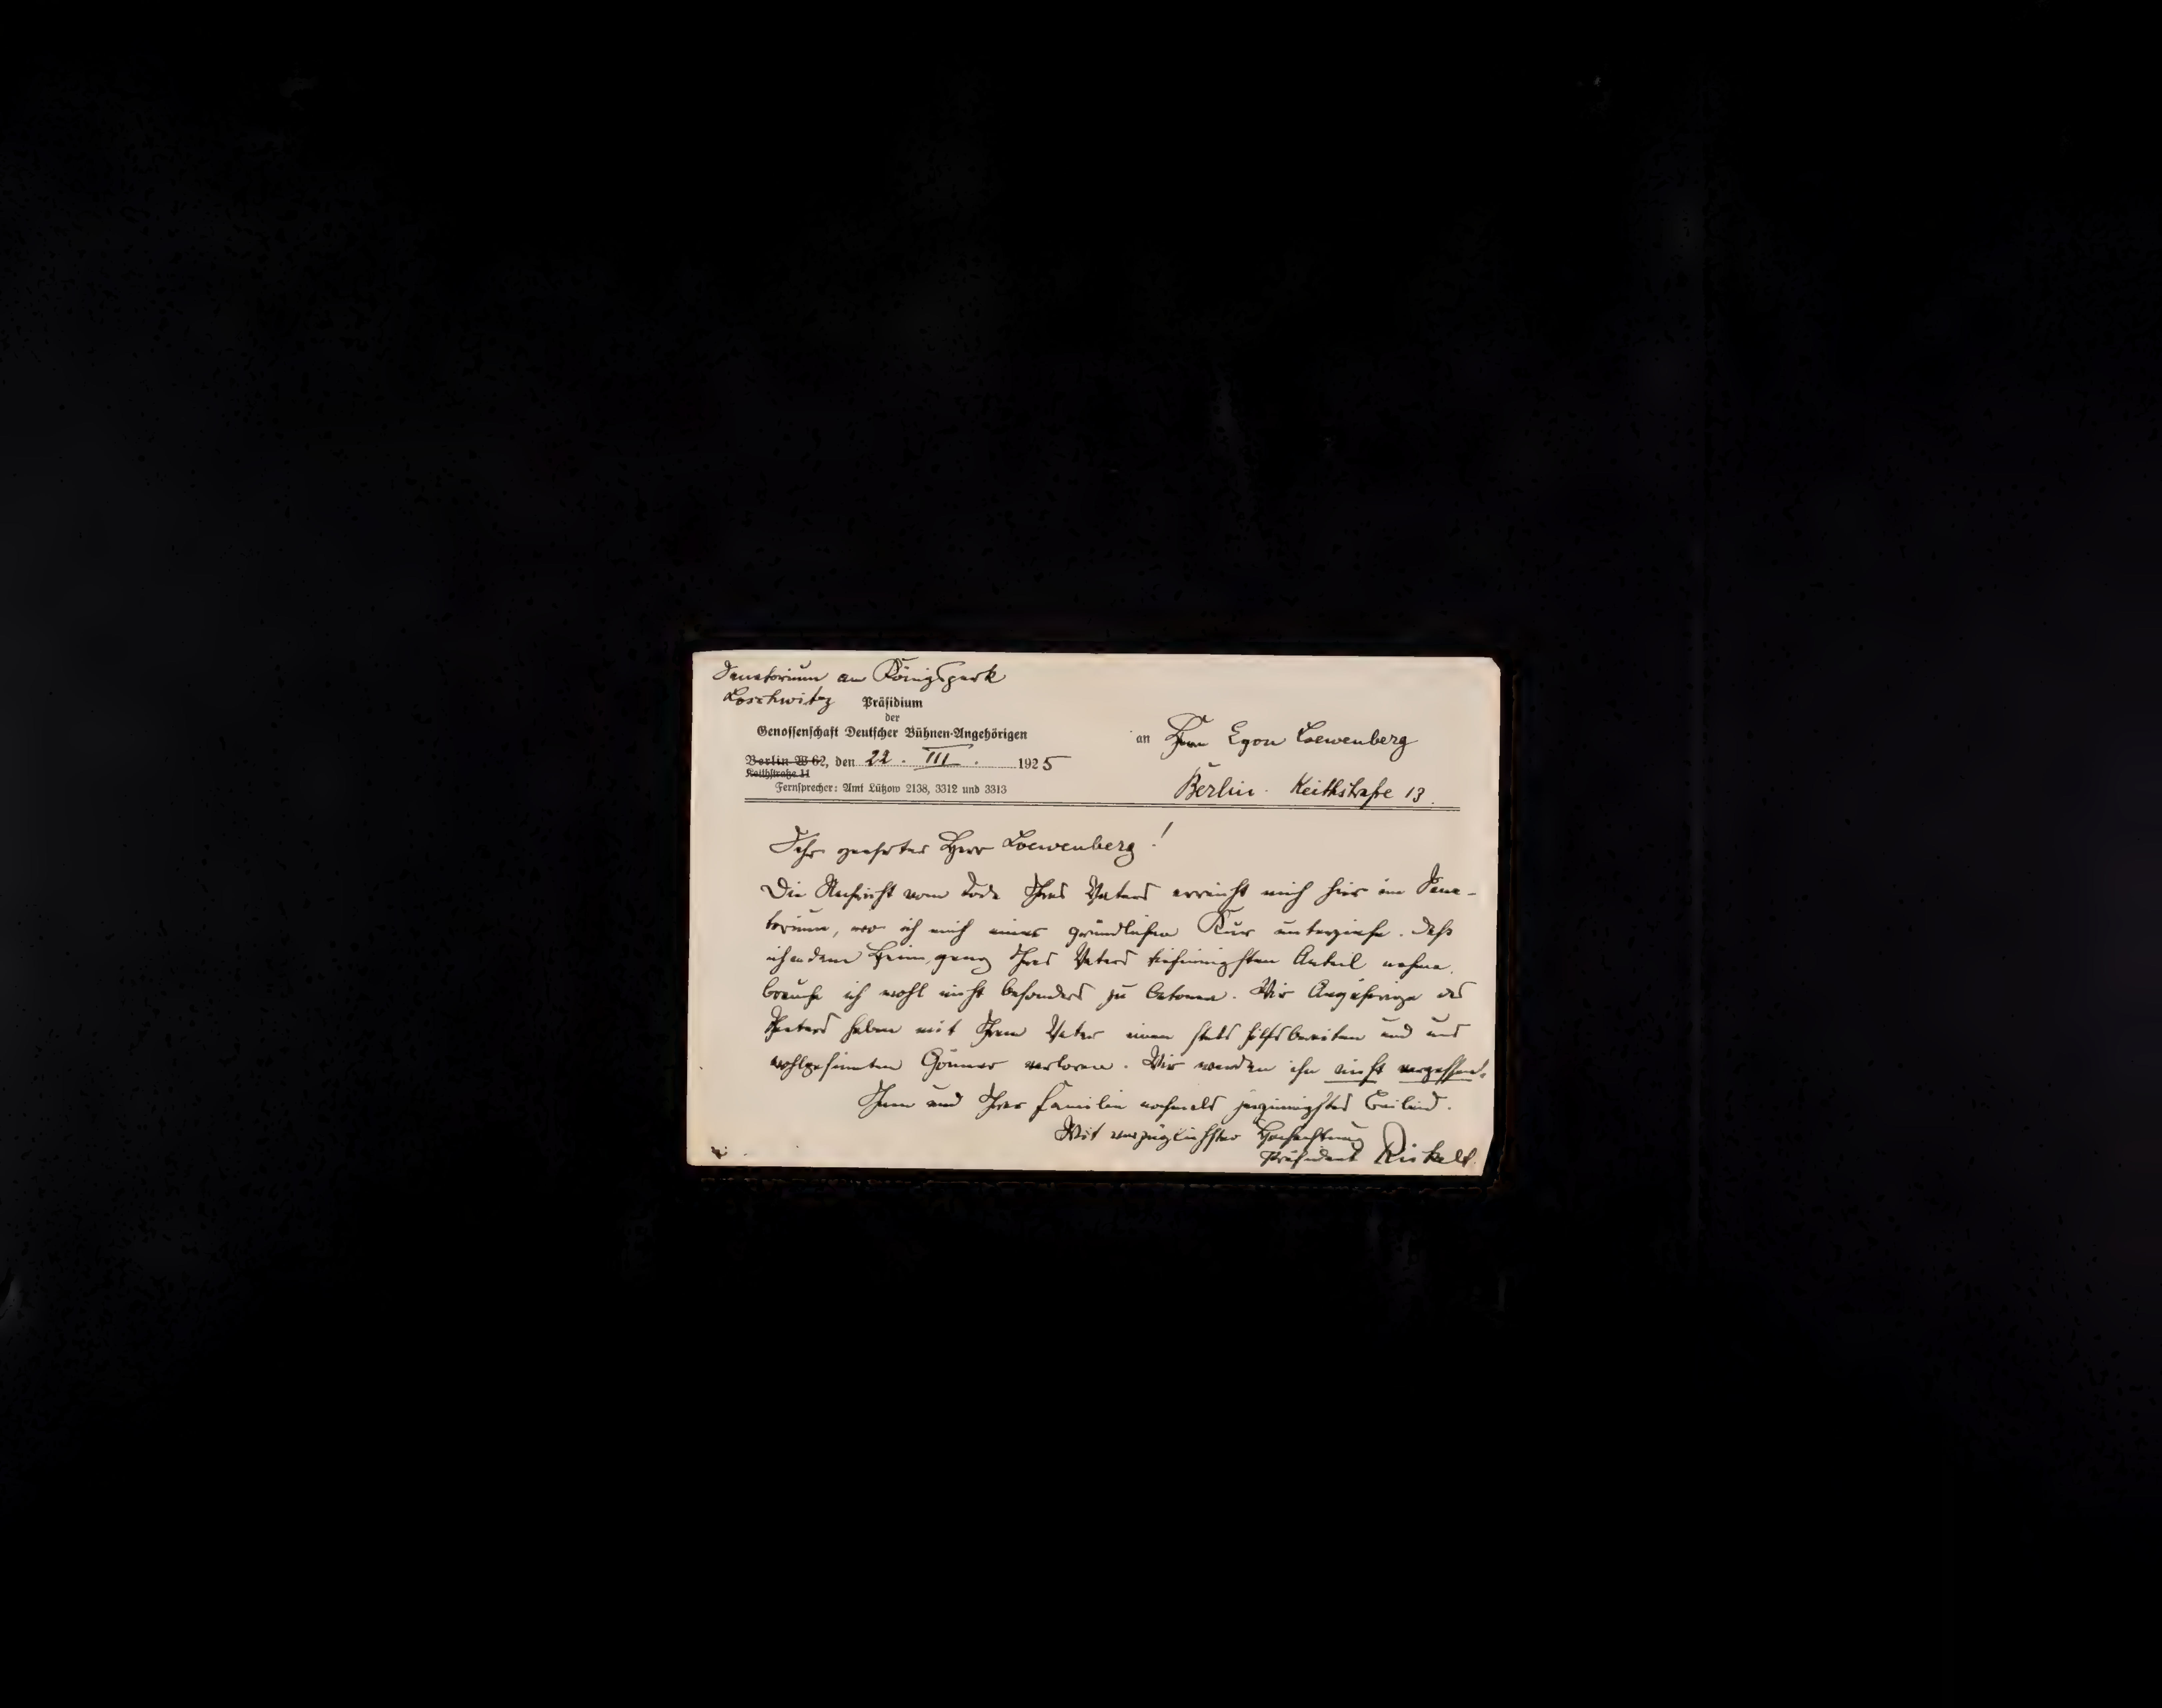 Sanatorium am Königspark
Loschwitz
Präsidium
der
Genossenschaft Deutscher Bühnen-Angehörigen
Berlin W 62, den 22. III. 1925
Keithstraße 11
Fernsprecher: Amt Lützow 2138, 3312 und 3313
an Herrn Egon Loewenberg
Berlin. Keithstraße 13.
Sehr geehrter Herr Loewenberg!
Die Nachricht vom Tode Ihres Vaters erreicht mich hier im Sana-
torium, wo ich mich einer gründlichen Kur unterziehe. Daß
ich an dem Heimgang Ihres Vaters tiefinnigsten Anteil nehme,
brauche ich wohl nicht besonders zu betonen. Wir Angehörige des
Theaters haben mit Ihrem Vater einen stets hilfsbereiten und uns
wohlgesinnten Gönner verloren. Wir werden ihn nicht vergessen.
Ihnen und Ihrer Familie nochmals herzinnigstes Beileid.
Mit vorzüglichster Hochachtung
Präsident Rickelt.